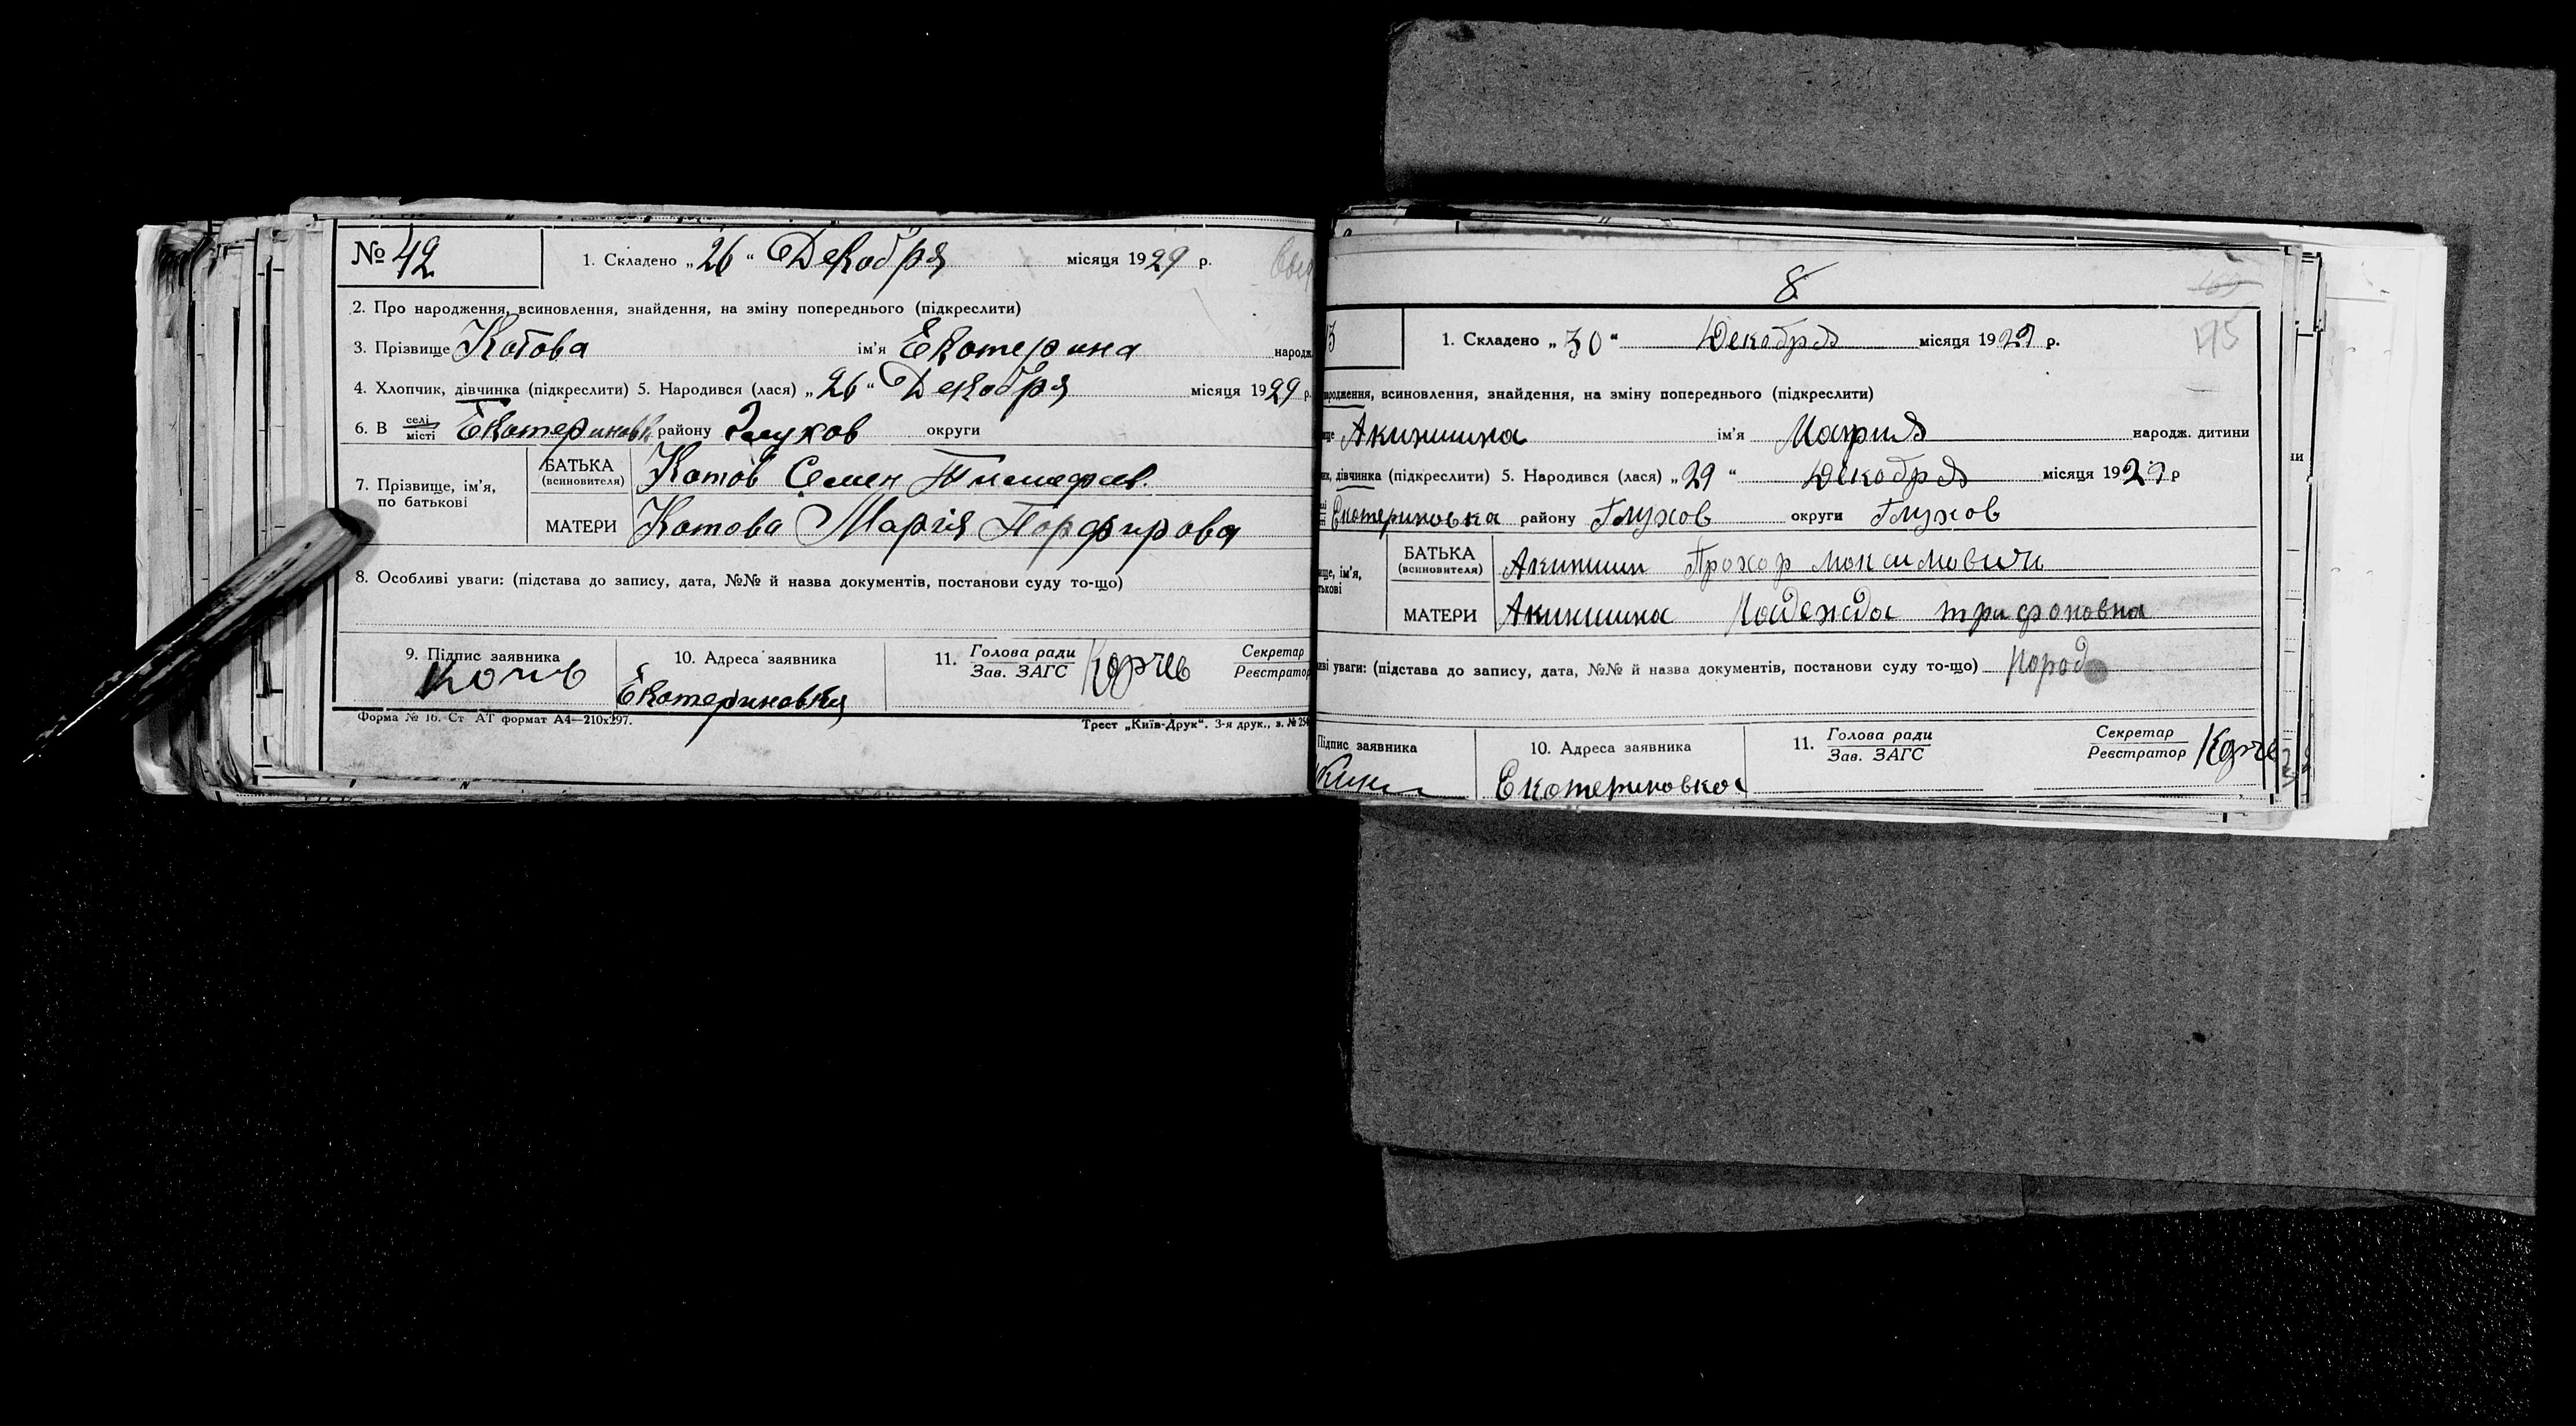 № 42
1. Складено „26“ Декабря місяця 1929 р.
2. Про народження, всиновлення, знайдення, на зміну попереднього (підкреслити)
3. Прізвище Котова ім'я Екатерина народж
4. Хлопчик, дівчинка (підкреслити) 5. Народився (лася) „26“ Декабря місяця 1929 р.
6. В селі місті Екатериновк району Глухов округи
7. Прізвище, ім'я, по батькові
БАТЬКА (всиновителя) Котов Семен Тимофеев.
МАТЕРИ Котова Марія Порфирова
8. Особливі уваги: (підстава до запису, дата, №№ й назва документів, постанови суду то-що)
9. Підпис заявника
10. Адреса заявника Екатериновка
11. Голова ради Зав. ЗАГС
Секретар Реєстратор
Форма № 16. Ст АТ формат А4—210х297.
Трест „Київ-Друк“. 3-я друк., з. №
8
175
1. Складено „30“ Декабря місяця 1929 р.
родження, всиновлення, знайдення, на зміну попереднього (підкреслити)
Акиншина ім'я Мария народж. дитини
дівчинка (підкреслити) 5. Народився (лася) „29“ Декабря місяця 1929 р
Екатериновка району Глухов округи Глухов
ище, ім'я, тькові
БАТЬКА (всиновителя) Акиншин Прохор Максимович
МАТЕРИ Акиншина Надежда трифоновна
иві уваги: (підстава до запису, дата, №№ й назва документів, постанови суду то-що)
Підпис заявника
10. Адреса заявника Екатериновка
11. Голова ради Зав. ЗАГС
Секретар Реєстратор